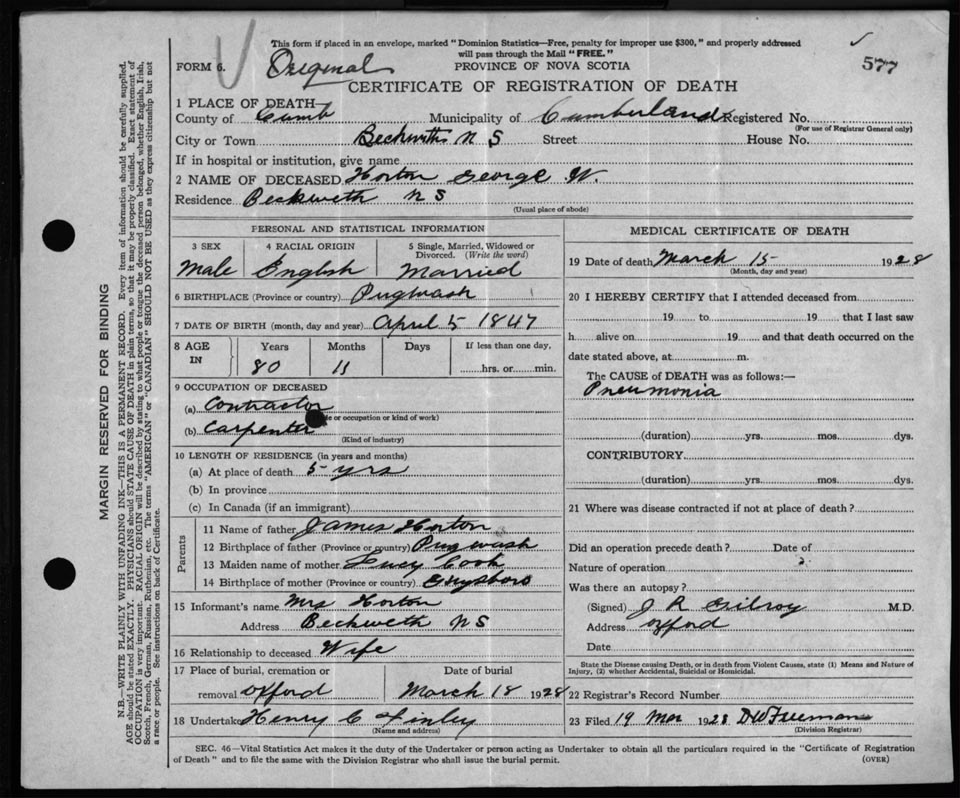 This form if placed in an envelope, marked "Dominion Statistics—Free, penalty for improper use $300," and properly addressed
will pass through the Mail "FREE."
FORM 6. Original PROVINCE OF NOVA SCOTIA 577
CERTIFICATE OF REGISTRATION OF DEATH
1 PLACE OF DEATH—
County of Cumb Municipality of Cumberland Registered No.
(For use of Registrar General only)
City or Town Beckwith N S Street House No.
If in hospital or institution, give name
2 NAME OF DECEASED Horton George W.
Residence Beckweth N S
(Usual place of abode)
PERSONAL AND STATISTICAL INFORMATION
3 SEX 4 RACIAL ORIGIN 5 Single, Married, Widowed or
Divorced. (Write the word)
Male English Married
6 BIRTHPLACE (Province or country) Pugwash
7 DATE OF BIRTH (month, day and year) April 5 1847
8 AGE IN Years Months Days If less than one day,
80 11 hrs. or min.
9 OCCUPATION OF DECEASED
(a) Contractor
or occupation or kind of work)
(b) Carpenter
(Kind of industry)
10 LENGTH OF RESIDENCE (in years and months)
(a) At place of death 5 yrs
(b) In province
(c) In Canada (if an immigrant)
Parents
11 Name of father James Horton
12 Birthplace of father (Province or country) Pugwash
13 Maiden name of mother Lucy Cook
14 Birthplace of mother (Province or country) Guysboro
15 Informant's name Mrs Horton
Address Beckweth N S
16 Relationship to deceased Wife
17 Place of burial, cremation or Date of burial
removal Oxford March 18 1928
18 Undertaker Henry C Finley
(Name and address)
MEDICAL CERTIFICATE OF DEATH
19 Date of death March 15 1928
(Month, day and year)
20 I HEREBY CERTIFY that I attended deceased from
19 to 19 that I last saw
h alive on 19 and that death occurred on the
date stated above, at m.
The CAUSE of DEATH was as follows:—
Pneumonia
(duration) yrs. mos. dys.
CONTRIBUTORY
(duration) yrs. mos. dys.
21 Where was disease contracted if not at place of death?
Did an operation precede death? Date of
Nature of operation
Was there an autopsy?
(Signed) J R Gilroy M.D.
Address Oxford
Date
State the Disease causing Death, or in death from Violent Causes, state (1) Means and Nature of
Injury, (2) whether Accidental, Suicidal or Homicidal.
22 Registrar's Record Number
23 Filed 19 Mar 1928 DW Freeman
(Division Registrar)
SEC. 46—Vital Statistics Act makes it the duty of the Undertaker or person acting as Undertaker to obtain all the particulars required in the "Certificate of Registration
of Death" and to file the same with the Division Registrar who shall issue the burial permit. (OVER)
MARGIN RESERVED FOR BINDING
N.B.—WRITE PLAINLY WITH UNFADING INK—THIS IS A PERMANENT RECORD. Every item of information should be carefully supplied.
AGE should be stated EXACTLY. PHYSICIANS should STATE CAUSE OF DEATH in plain terms, so that it may be properly classified. Exact statement of
OCCUPATION is very important. RACIAL ORIGIN will be described by stating to what people or tongue the deceased person belonged, whether English, Irish,
Scotch, French, German, Russian, Ruthenian, etc. The terms "AMERICAN" or "CANADIAN" SHOULD NOT BE USED as they express citizenship but not
a race or people. See instructions on back of Certificate.